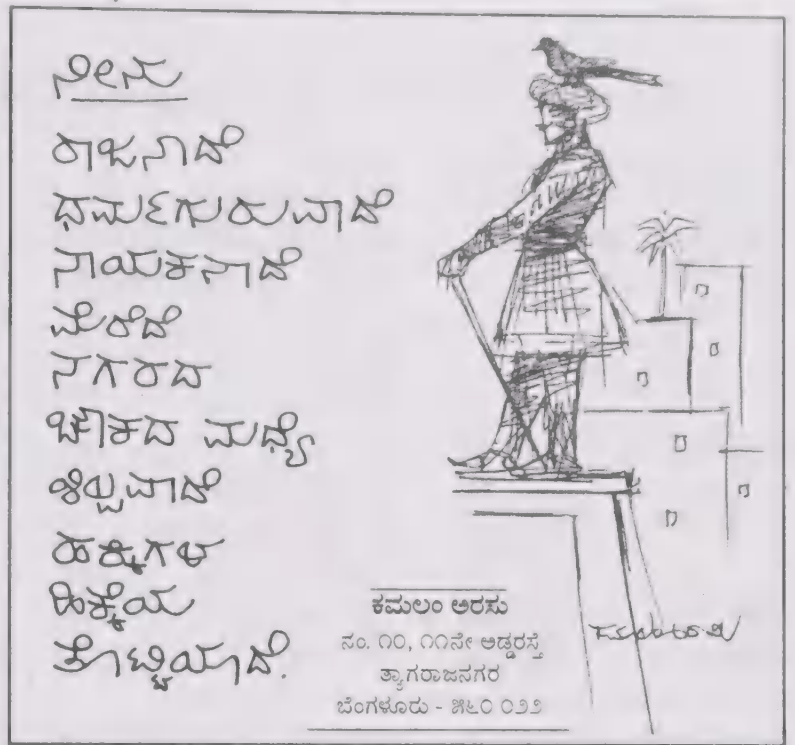 ನೀನು
ರಾಜನಾದೆ
ಧರ್ಮಗುರುವಾದೆ
ನಾಯಕನಾದೆ
ಮೆರೆದೆ
ನಗರದ
ಚೌಕದ ಮಧ್ಯೆ
ಶಿಲ್ಪವಾದೆ
ಹಕ್ಕಿಗಳ
ಹಿಕ್ಕೆಯ
ತೊಟ್ಟಿಯಾದೆ.
ಕಮಲಂ ಅರಸು
ನಂ. ೧೦, ೧೧ನೇ ಅಡ್ಡರಸ್ತೆ
ತ್ಯಾಗರಾಜನಗರ
ಬೆಂಗಳೂರು - ೫೬೦ ೦೨೨